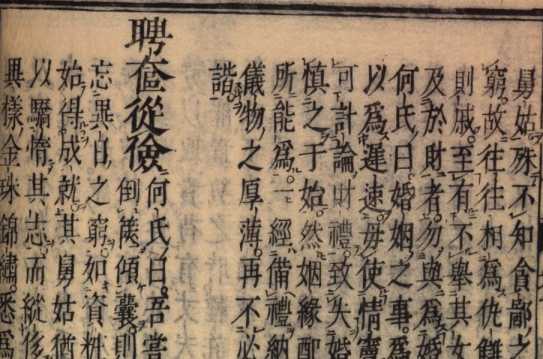 舅姑殊不知貪鄙之
窮故往往相爲仇讐
則戚至有不舉其女
及於財者勿與爲婚
何氏曰婚姻之事爲
以爲遲速毋使情竇
可計論財禮致失婚
慎之于始然姻緣配
所能爲一經備禮納
儀物之厚薄再不必
諧
聘奩從儉
何氏曰吾嘗
倒篋傾囊則
忘異日之窮如資粧
始得成就其舅姑猶
以驕惰其志而縱
異樣金珠錦繡悉爲